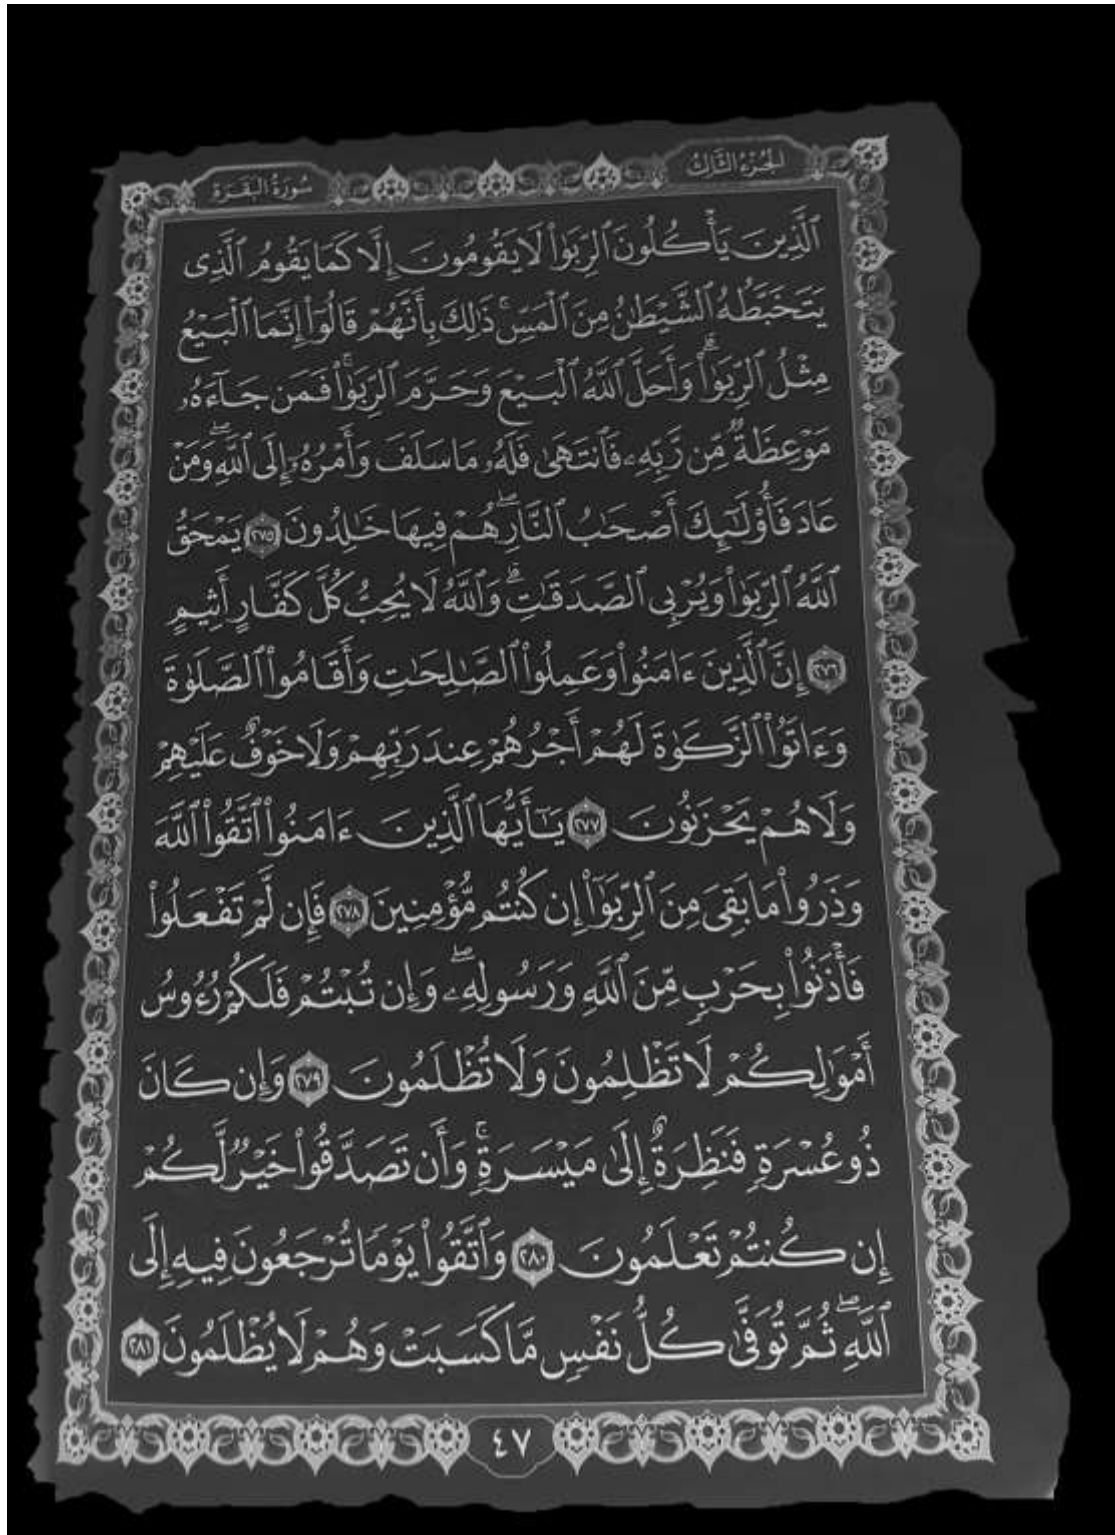 الجُزْءُ الثَّالِثُ
سُورَةُ البَقَرَةِ
ٱلَّذِينَ يَأْكُلُونَ ٱلرِّبَوٰا۟ لَا يَقُومُونَ إِلَّا كَمَا يَقُومُ ٱلَّذِى
يَتَخَبَّطُهُ ٱلشَّيْطَٰنُ مِنَ ٱلْمَسِّۚ ذَٰلِكَ بِأَنَّهُمْ قَالُوٓا۟ إِنَّمَا ٱلْبَيْعُ
مِثْلُ ٱلرِّبَوٰا۟ۗ وَأَحَلَّ ٱللَّهُ ٱلْبَيْعَ وَحَرَّمَ ٱلرِّبَوٰا۟ۚ فَمَن جَآءَهُۥ
مَوْعِظَةٌ مِّن رَّبِّهِۦ فَٱنتَهَىٰ فَلَهُۥ مَا سَلَفَ وَأَمْرُهُۥٓ إِلَى ٱللَّهِۖ وَمَنْ
عَادَ فَأُو۟لَٰٓئِكَ أَصْحَٰبُ ٱلنَّارِۖ هُمْ فِيهَا خَٰلِدُونَ ٢٧٥ يَمْحَقُ
ٱللَّهُ ٱلرِّبَوٰا۟ وَيُرْبِى ٱلصَّدَقَٰتِۗ وَٱللَّهُ لَا يُحِبُّ كُلَّ كَفَّارٍ أَثِيمٍ
٢٧٦ إِنَّ ٱلَّذِينَ ءَامَنُوا۟ وَعَمِلُوا۟ ٱلصَّٰلِحَٰتِ وَأَقَامُوا۟ ٱلصَّلَوٰةَ
وَءَاتَوُا۟ ٱلزَّكَوٰةَ لَهُمْ أَجْرُهُمْ عِندَ رَبِّهِمْ وَلَا خَوْفٌ عَلَيْهِمْ
وَلَا هُمْ يَحْزَنُونَ ٢٧٧ يَٰٓأَيُّهَا ٱلَّذِينَ ءَامَنُوا۟ ٱتَّقُوا۟ ٱللَّهَ
وَذَرُوا۟ مَا بَقِىَ مِنَ ٱلرِّبَوٰٓا۟ إِن كُنتُم مُّؤْمِنِينَ ٢٧٨ فَإِن لَّمْ تَفْعَلُوا۟
فَأْذَنُوا۟ بِحَرْبٍ مِّنَ ٱللَّهِ وَرَسُولِهِۦۖ وَإِن تُبْتُمْ فَلَكُمْ رُءُوسُ
أَمْوَٰلِكُمْ لَا تَظْلِمُونَ وَلَا تُظْلَمُونَ ٢٧٩ وَإِن كَانَ
ذُو عُسْرَةٍ فَنَظِرَةٌ إِلَىٰ مَيْسَرَةٍۚ وَأَن تَصَدَّقُوا۟ خَيْرٌ لَّكُمْ
إِن كُنتُمْ تَعْلَمُونَ ٢٨٠ وَٱتَّقُوا۟ يَوْمًا تُرْجَعُونَ فِيهِ إِلَى
ٱللَّهِۖ ثُمَّ تُوَفَّىٰ كُلُّ نَفْسٍ مَّا كَسَبَتْ وَهُمْ لَا يُظْلَمُونَ ٢٨١
٤٧